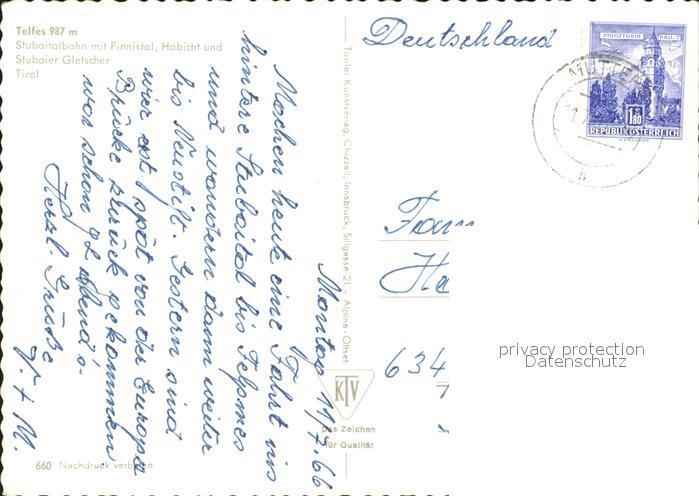 Telfes 987 m
Stubaitalbahn mit Pinnistal, Habicht und
Stubaier Gletscher
Tirol
Deutschland
MÜNZTURM HALL I. T.
1.80
REPUBLIK ÖSTERREICH
MUTTERS
b
Tiroler Kunstverlag, Chizzali, Innsbruck, Sillgasse 21 - Alpine-Offset
Montag 11/7.66
Machen heute eine Fahrt ins
hintere Stubaital bis
und wandern dann weiter
bis Neustift. Gestern sind
wir erst spät von der Europa
Brücke zurück gekommen
war schon abend's.
Herzl. Grüße
V. + M.
Fam
Ha
634
KTV
Das Zeichen
für Qualität
660 Nachdruck verboten
privacy protection
Datenschutz